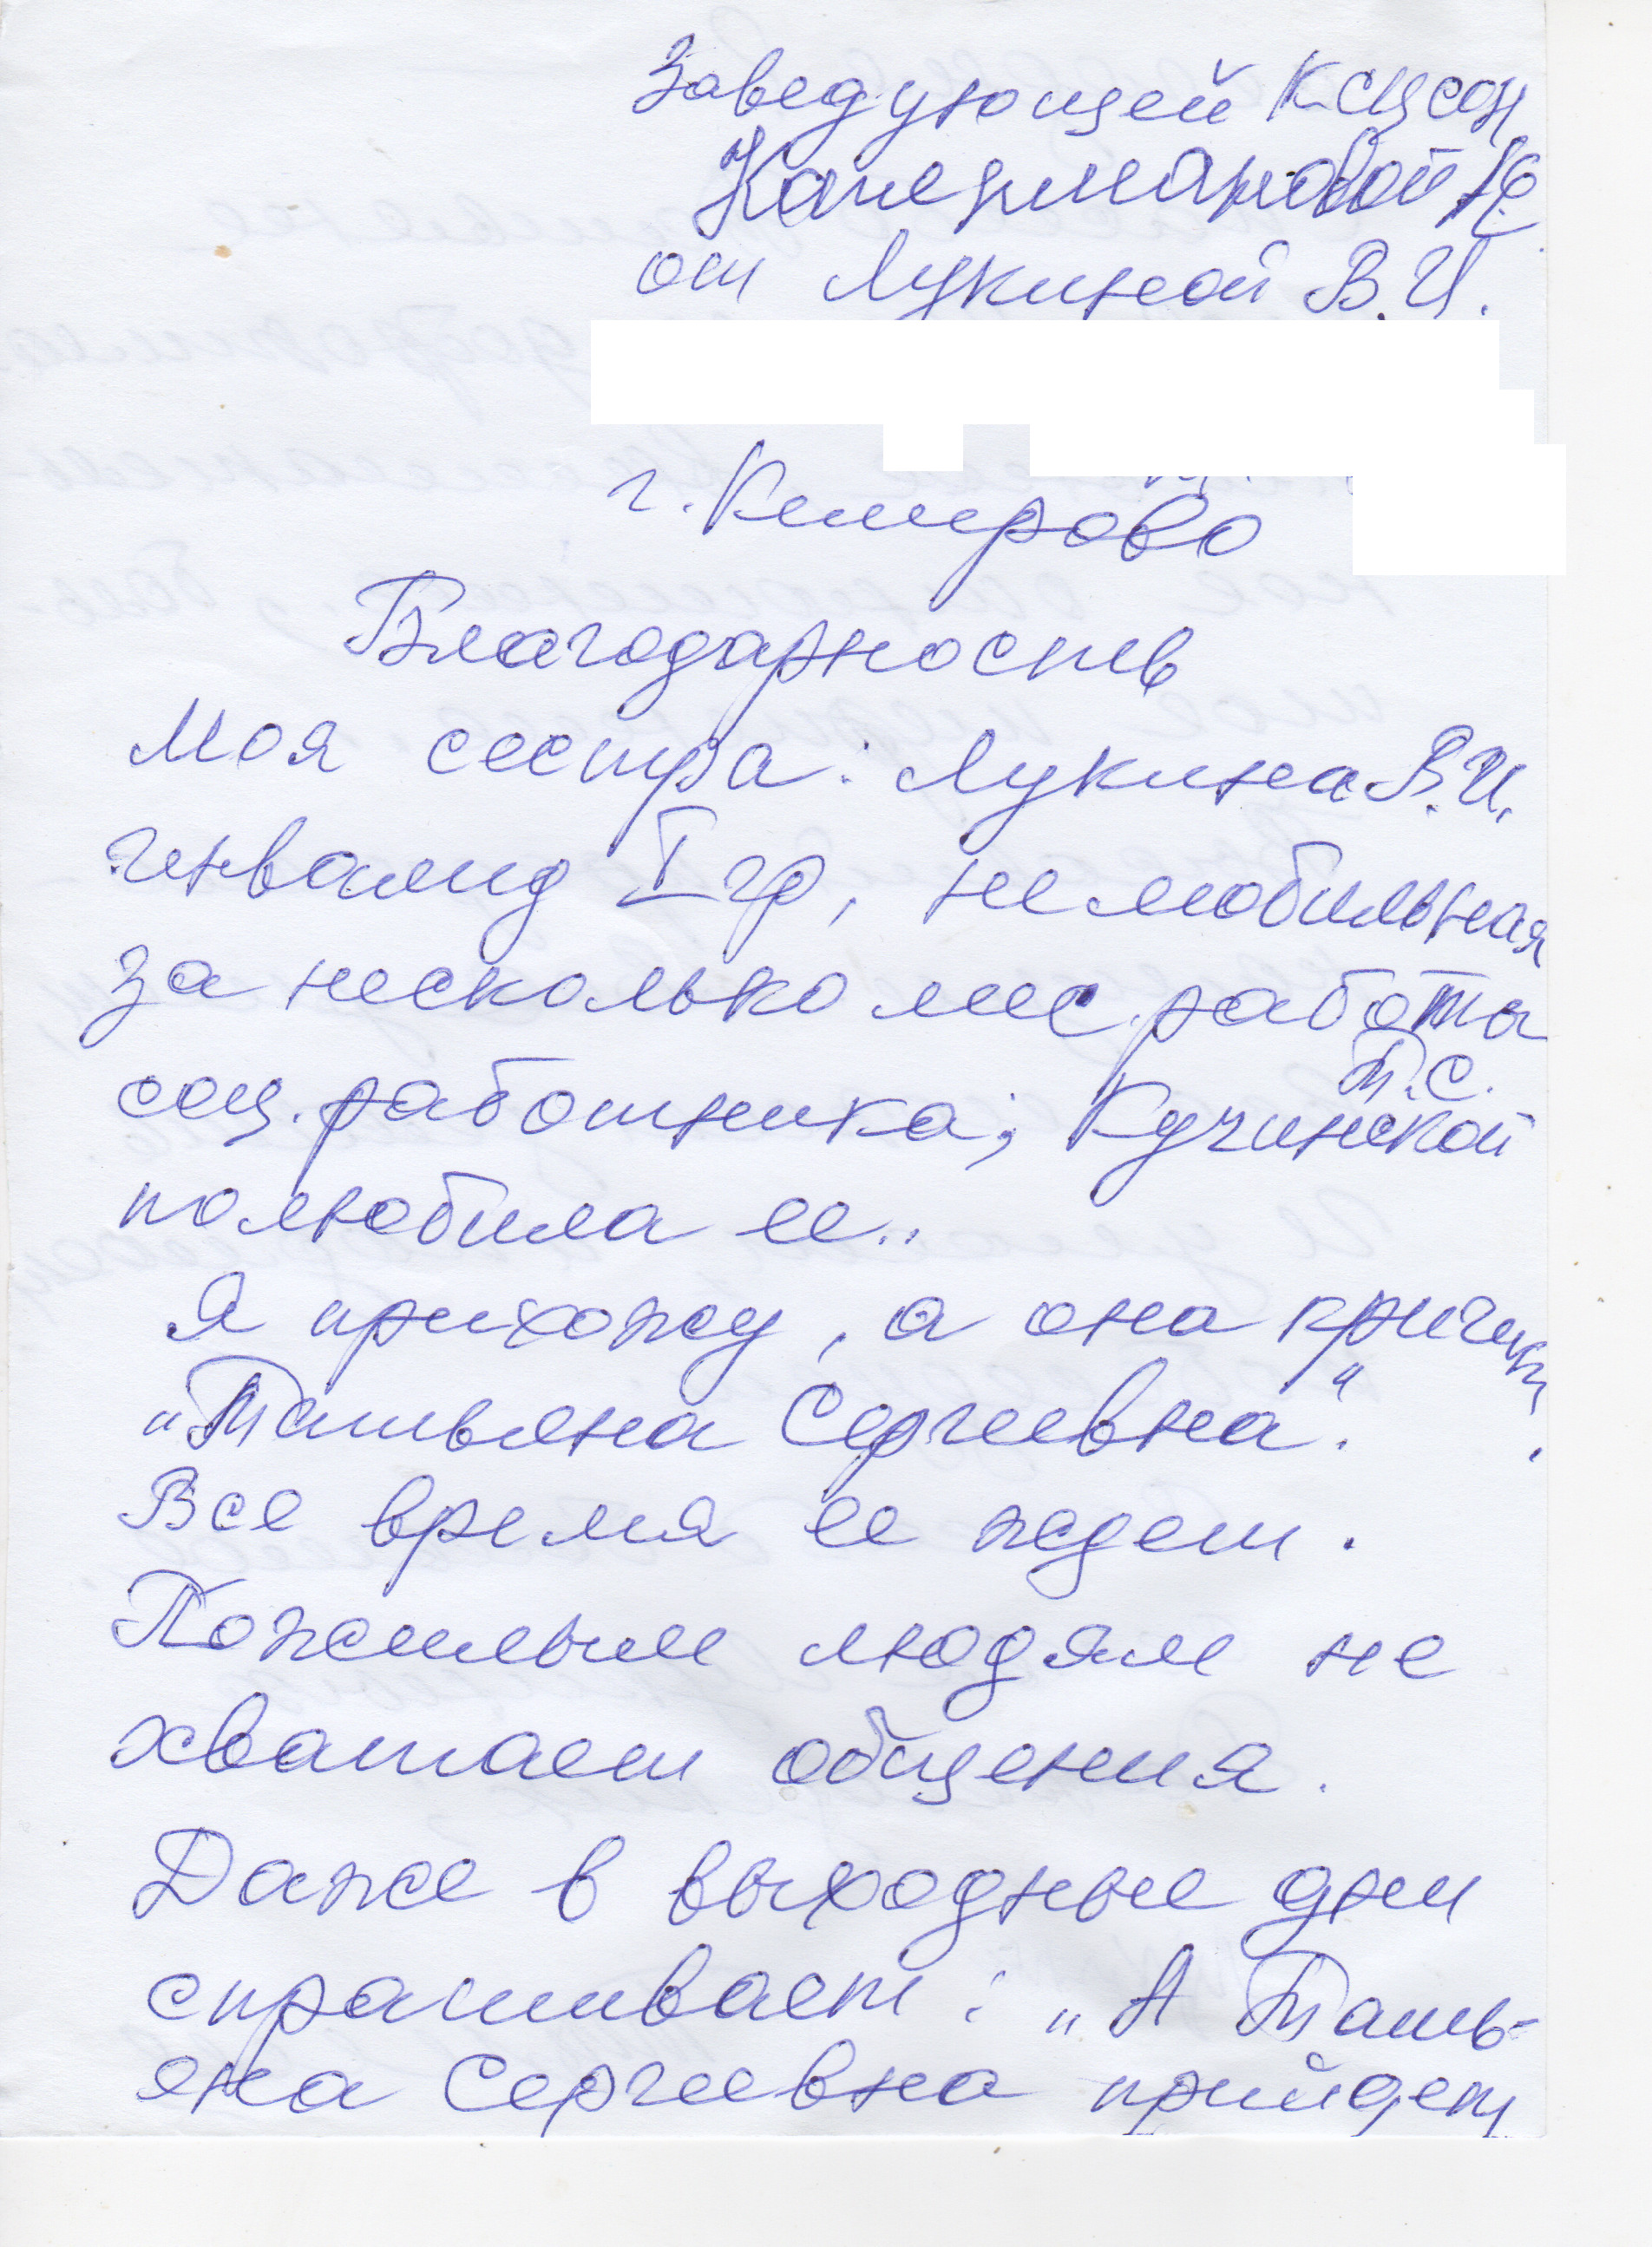 Заведующей КСЦСОН
от Лукиной В.И.
г. Кемерово
Благодарность
Моя сестра: Лукина В.И.
инвалид I гр, не мобильная
за несколько мес. работы
Т.С.
соц. работника; Кучинской
полюбила ее..
Я прихожу, а она кричит,
"Татьяна Сергеевна".
Все время ее ждет.
Пожилым людям не
хватает общения.
Даже в выходные дни
спрашивает: "А Тать-
яна Сергеевна прийдет